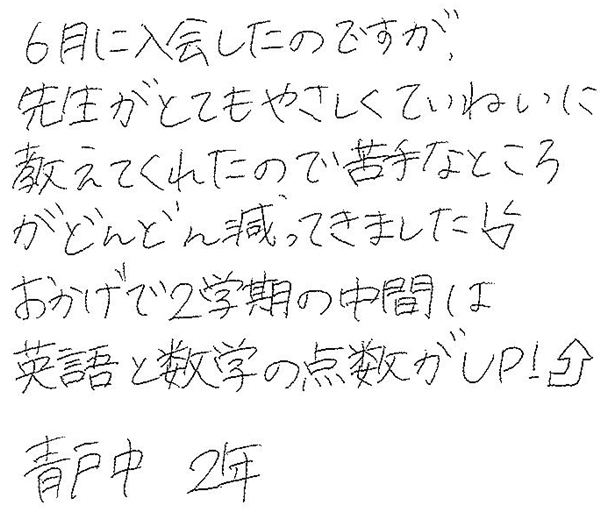 6月に入会したのですが、
先生がとてもやさしくていねいに
教えてくれたので苦手なところ
がどんどん減ってきました↓
おかげで2学期の中間は
英語と数学の点数がUP!⇧
青戸中 2年